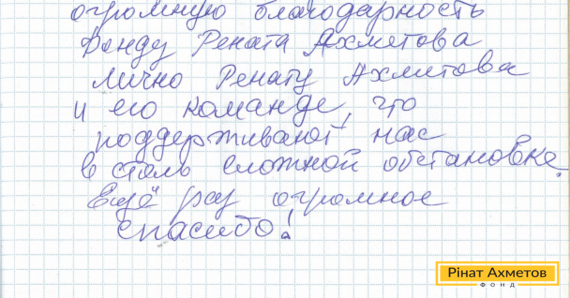 огромную благодарность
Фонду Рената Ахметова
лично Ренату Ахметова
и его команде, что
поддерживают нас
в столь сложной обстановке.
Ещё раз огромное
спасибо!
Рінат Ахметов
ФОНД